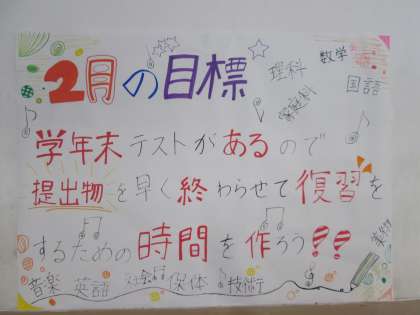 2月の目標
理科
数学
国語
家庭科
学年末テストがあるので
提出物を早く終わらせて復習を
するための時間を作ろう!!
美術
音楽 英語 社会 保体 技術